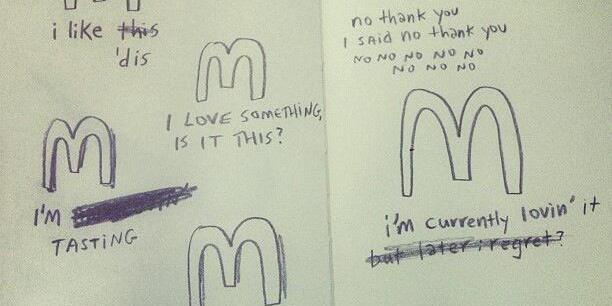 i like this
'dis
I LOVE SOMETHING,
IS IT THIS?
I'M
TASTING
no thank you
I SAID no thank you
NO NO NO NO NO
NO NO NO
i'm currently lovin' it
but later i regret?